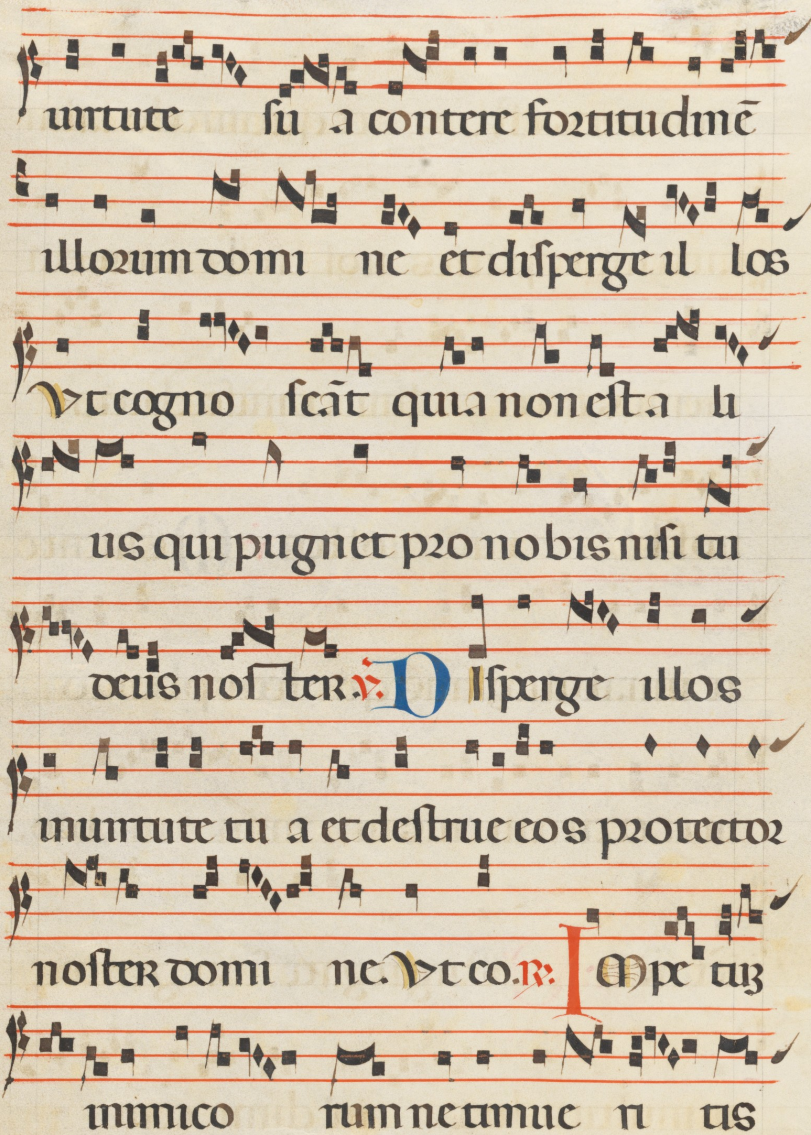 uirtute su a contere fortitudinē
illorum domi ne et disperge il los
Vt cogno scāt quia non est a li
us qui pugnet pro nobis nisi tu
deus nos ter. ℣. D Isperge illos
in uirtute tu a et destrue eos protector
noster domi ne. Vt co. ℟. I Mpe tuꝫ
inimico rum ne timue ri tis